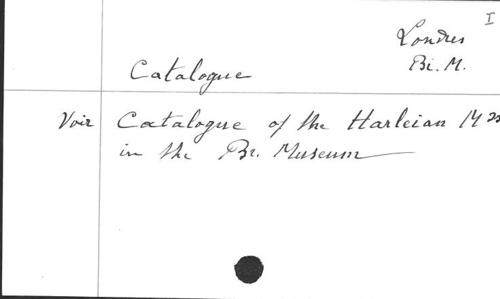 I
Londres
Br. M.
Catalogue
Voir Catalogue of the Harleian Mss
in the Br. Museum